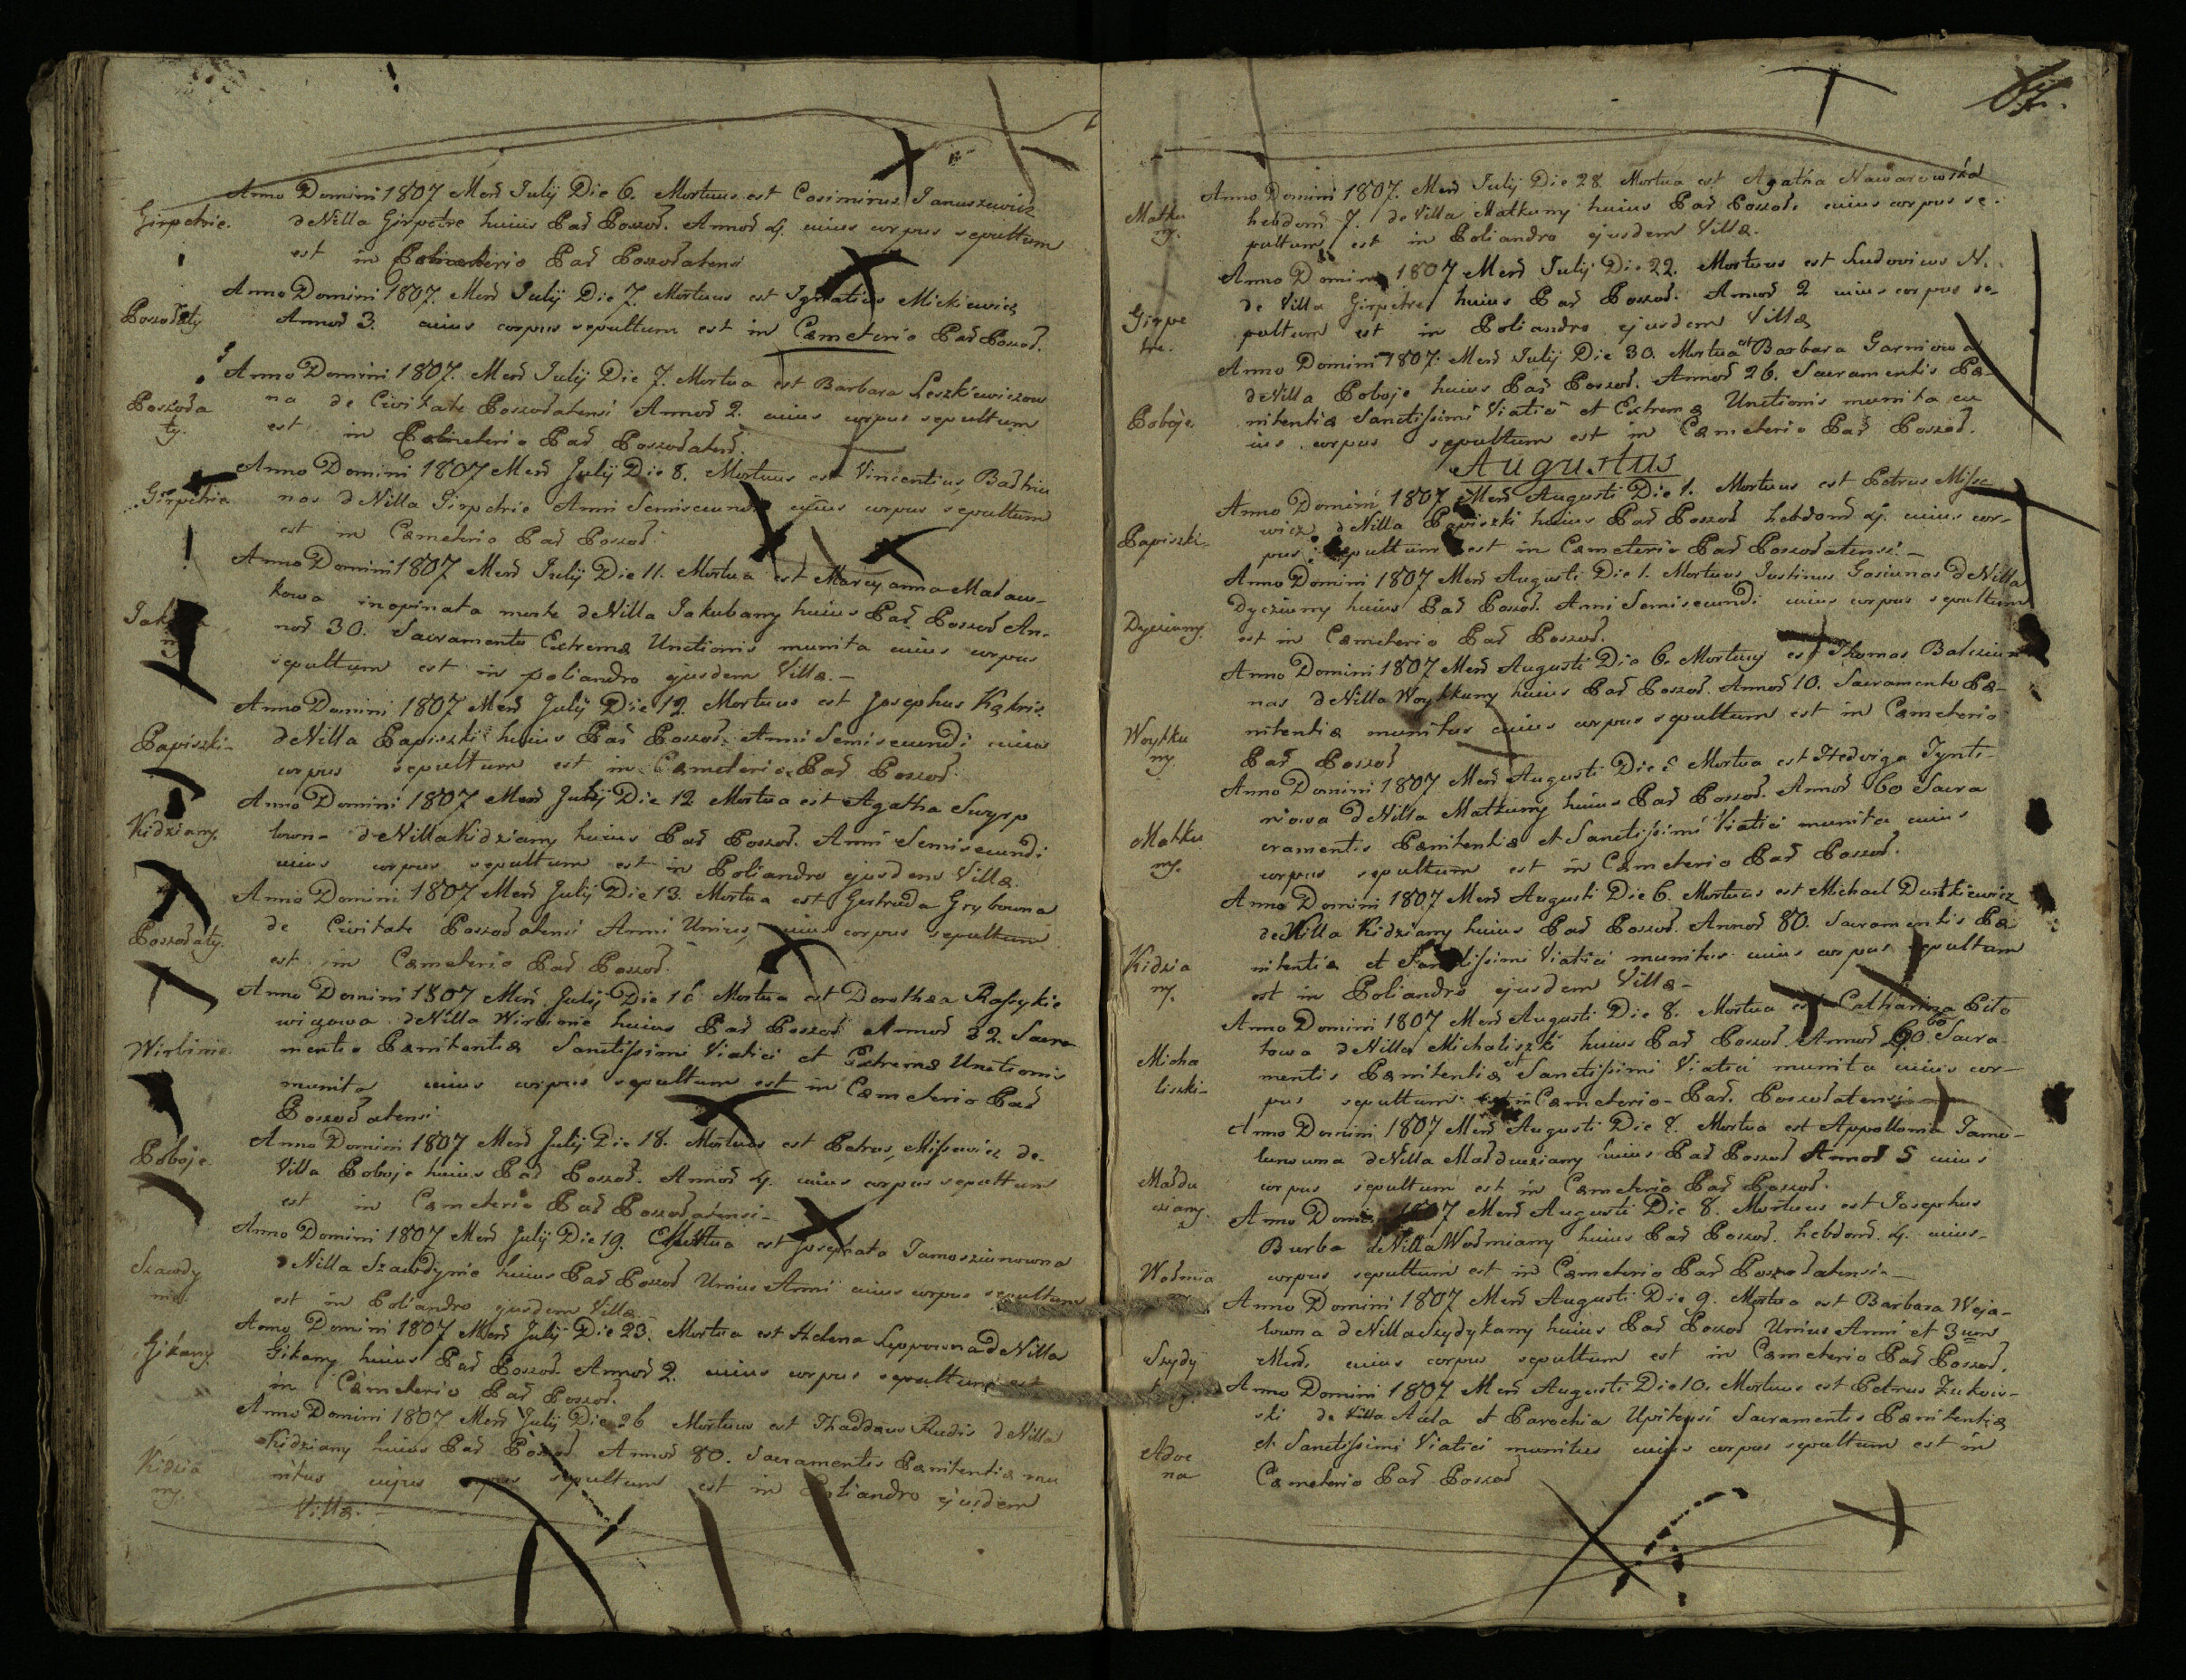 Anno Domini 1807 Mens Julij Die 6. Mortuus est Casimirus Januszewicz
Girpetrie. de Villa Girpetre huius Par Poszoł. Annor 4. cuius corpus sepultum
est in Cæmeterio Par Poszołatensi
Anno Domini 1807. Mens Julij Die 7. Mortuus est Ignatius Mickiewicz
Poszołaty Annor 3. cuius corpus sepultum est in Cæmeterio Par Poszoł.
Anno Domini 1807. Mens Julij Die 7. Mortua est Barbara Leszkiewiczow
Poszoła na de Civitate Poszołatensi Annor 2. cuius corpus sepultum
ty. est in Cæmeterio Par Poszołatens.
Anno Domini 1807 Mens Julij Die 8. Mortuus est Vincentius
Girpetrie nas de Villa Girpetrie Anni Semisecundi cujus corpus sepultum
est in Cæmeterio Par Poszoł.
Anno Domini 1807 Mens Julij Die 11. Mortua est Maryanna Maław-
kowa inopinata morte de Villa Jakubany huius Par Poszoł An-
ny. nor 30. Sacramento Extremæ Unctionis munita cuius corpus
sepultum est in poliandro ejusdem Villæ.-
Anno Domini 1807 Mens Julij Die 12. Mortuus est Josephus
Papiszki- de Villa Papiszki huius Par Poszoł. Anni Semisecundi cuius
corpus sepultum est in Cæmeterio Par Poszoł.
Anno Domini 1807 Mens Julij Die 12 Mortua est Agatha Swyrp
Kidziany. lowna de Villa Kidziany huius Par Poszoł. Anni Semisecundi
cuius corpus sepultum est in Poliandro ejusdem Villæ.
Anno Domini 1807 Mens Julij Die 13. Mortua est Gertruda Grybowna
Poszołaty. de Civitate Poszołatensi Anni Unius, cuius corpus sepultum
est in Cæmeterio Par Poszoł.
Anno Domini 1807 Mens Julij Die Mortua est Dorothæa
wiczowa de Villa huius Par Poszoł Annor 32. Sacra
Wirbinie. mentis Pænitentiæ Sanctissimi Viatici et Extremæ Unctionis
munita cuius corpus sepultum est in Cæmeterio Par
Poszołatensi.
Anno Domini 1807 Mens Julij Die 18. Mortuus est Petrus Missewicz de
Poboje. Villa Poboje huius Par Poszoł. Annor 4. cuius corpus sepultum
est in Cæmeterio Par Poszołatensi-
Anno Domini 1807 Mens Julij Die 19. Mortua est Josephata Tamoszunowna
Szawdy de Villa Szawdynie huius Par Poszoł Unius Anni cuius corpus sepultum
nie. est in Poliandro ejusdem Villæ-
Anno Domini 1807 Mens Julij Die 23. Mortua est Helena Lippowna de Villa
Gikany. Gikany huius Par Poszoł. Annor 2. cuius corpus sepultum est
in Cæmeterio Par Poszoł.
Anno Domini 1807 Mens Julij Die 26 Mortuus est Thaddæus Rudis de Villa
Kidzia Kidziany huius Par Poszoł Annor 80. Sacramentis Pænitentiæ mu
ny. nitus cujus corpus sepultum est in Poliandro ejusdem
Villæ.
Anno Domini 1807. Mens Julij Die 28 Mortua est Agatha Nawarowska
Matku hebdom 7. de Villa Matkuny huius Par Poszoł. cuius corpus se-
ny. pultum est in Poliandro ejusdem Villæ.
Anno Domini 1807 Mens Julij Die 22. Mortuus est Ludovicus N.
Girpe de Villa Girpetre huius Par Poszoł. Annor 2 cuius corpus se-
tre. pultum est in Poliandro ejusdem Villæ
Anno Domini 1807. Mens Julij Die 30. Mortua est Barbara Garniowa
de Villa Poboje huius Par Poszoł. Annor 26. Sacramentis Pæ-
Poboje. nitentiæ Sanctissimi Viatici et Extremæ Unctionis munita cu
ius corpus sepultum est in Cæmeterio Par Poszoł.
Augustus
Anno Domini 1807 Mens Augusti Die 1. Mortuus est Petrus Misse
Papiszki- wicz de Villa Papiszki huius Par Poszoł hebdom 4. cuius cor-
pus sepultum est in Cæmeterio Par Poszołatensi.-
Anno Domini 1807 Mens Augusti Die 1. Mortuus Justinus Gasiunas de Villa
Dyczuny. Dycziuny huius Par Poszoł. Anni Semisecundi cuius corpus sepultum
est in Cæmeterio Par Poszoł.
Anno Domini 1807 Mens Augusti Die 6. Mortuus est Thomas Balcziu
nas de Villa Woytkuny huius Par Poszoł. Annor 10. Sacramento Pæ-
Woytku nitentiæ munitus cuius corpus sepultum est in Cæmeterio
ny. Par Poszoł
Anno Domini 1807 Mens Augusti Die Mortua est Hedviga Tynti-
niowa de Villa Matkuny huius Par Poszoł. Annor 60 Sacra
Matku cramentis Pænitentiæ et Sanctissimi Viatici munita cuius
ny. corpus sepultum est in Cæmeterio Par Poszoł.
Anno Domini 1807 Mens Augusti Die 6. Mortuus est Michael Dutkiewicz
de Villa Kidziany huius Par Poszoł. Annor 80. Sacramentis Pæ-
Kidzia nitentiæ et Sanctissimi Viatici munitus cuius corpus sepultum
ny. est in Poliandro ejusdem Villæ-
Anno Domini 1807 Mens Augusti Die 8. Mortua est Catharina Pito
towa de Villa Michaliszki huius Par Poszoł Annor 60 Sacra
Micha mentis Pænitentiæ et Sanctissimi Viatici munita cuius cor-
liszki- pus sepultum est in Cæmeterio Par. Poszołatensi
Anno Domini 1807 Mens Augusti Die 8. Mortua est Appollonia Tamo-
lunowna de Villa Małduziany huius Par Poszoł Annor 5 cuius
Małdu corpus sepultum est in Cæmeterio Par Poszoł.
ziany. Anno Domini 1807 Mens Augusti Die 8. Mortuus est Josephus
Burba de Villa Wodmiany huius Par Poszoł. hebdom. 4. cuius-
Wodmia corpus sepultum est in Cæmeterio Par Poszołatensi-
Anno Domini 1807 Mens Augusti Die 9. Mortua est Barbara Weja-
lowna de Villa Szydykany huius Par Poszoł Unius Anni et 3um
Szydy Mens. cuius corpus sepultum est in Cæmeterio Par Poszoł.
Anno Domini 1807 Mens Augusti Die 10. Mortuus est Petrus Zukow-
ski de Villa Aula et Parochia Upitensi Sacramentis Pænitentiæ
Adve et Sanctissimi Viatici munitus cuius corpus sepultum est in
na Cæmeterio Par Poszoł